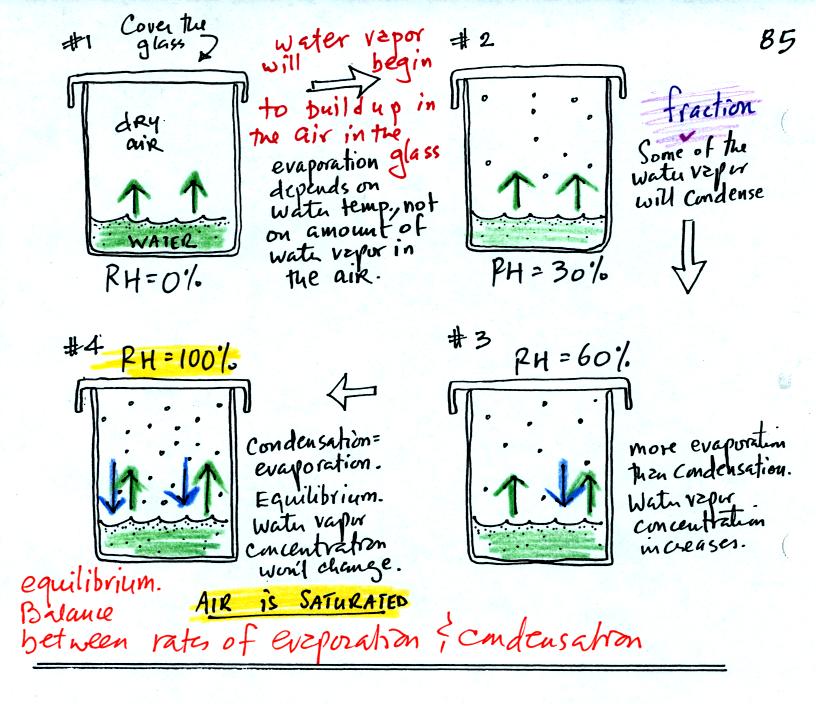 85
#1 Cover the
glass
dry
air
WATER
RH=0%
water vapor
will begin
to buildup in
the air in the
glass
evaporation
depends on
water temp., not
on amount of
water vapor in
the air.
#2
RH = 30%
fraction
Some of the
water vapor
will condense
#3
RH = 60%
more evaporation
than condensation.
Water vapor
concentration
increases.
#4
RH = 100%
Condensation =
evaporation.
Equilibrium.
Water vapor
concentration
won't change.
AIR is SATURATED
equilibrium.
Balance
between rates of evaporation & condensation